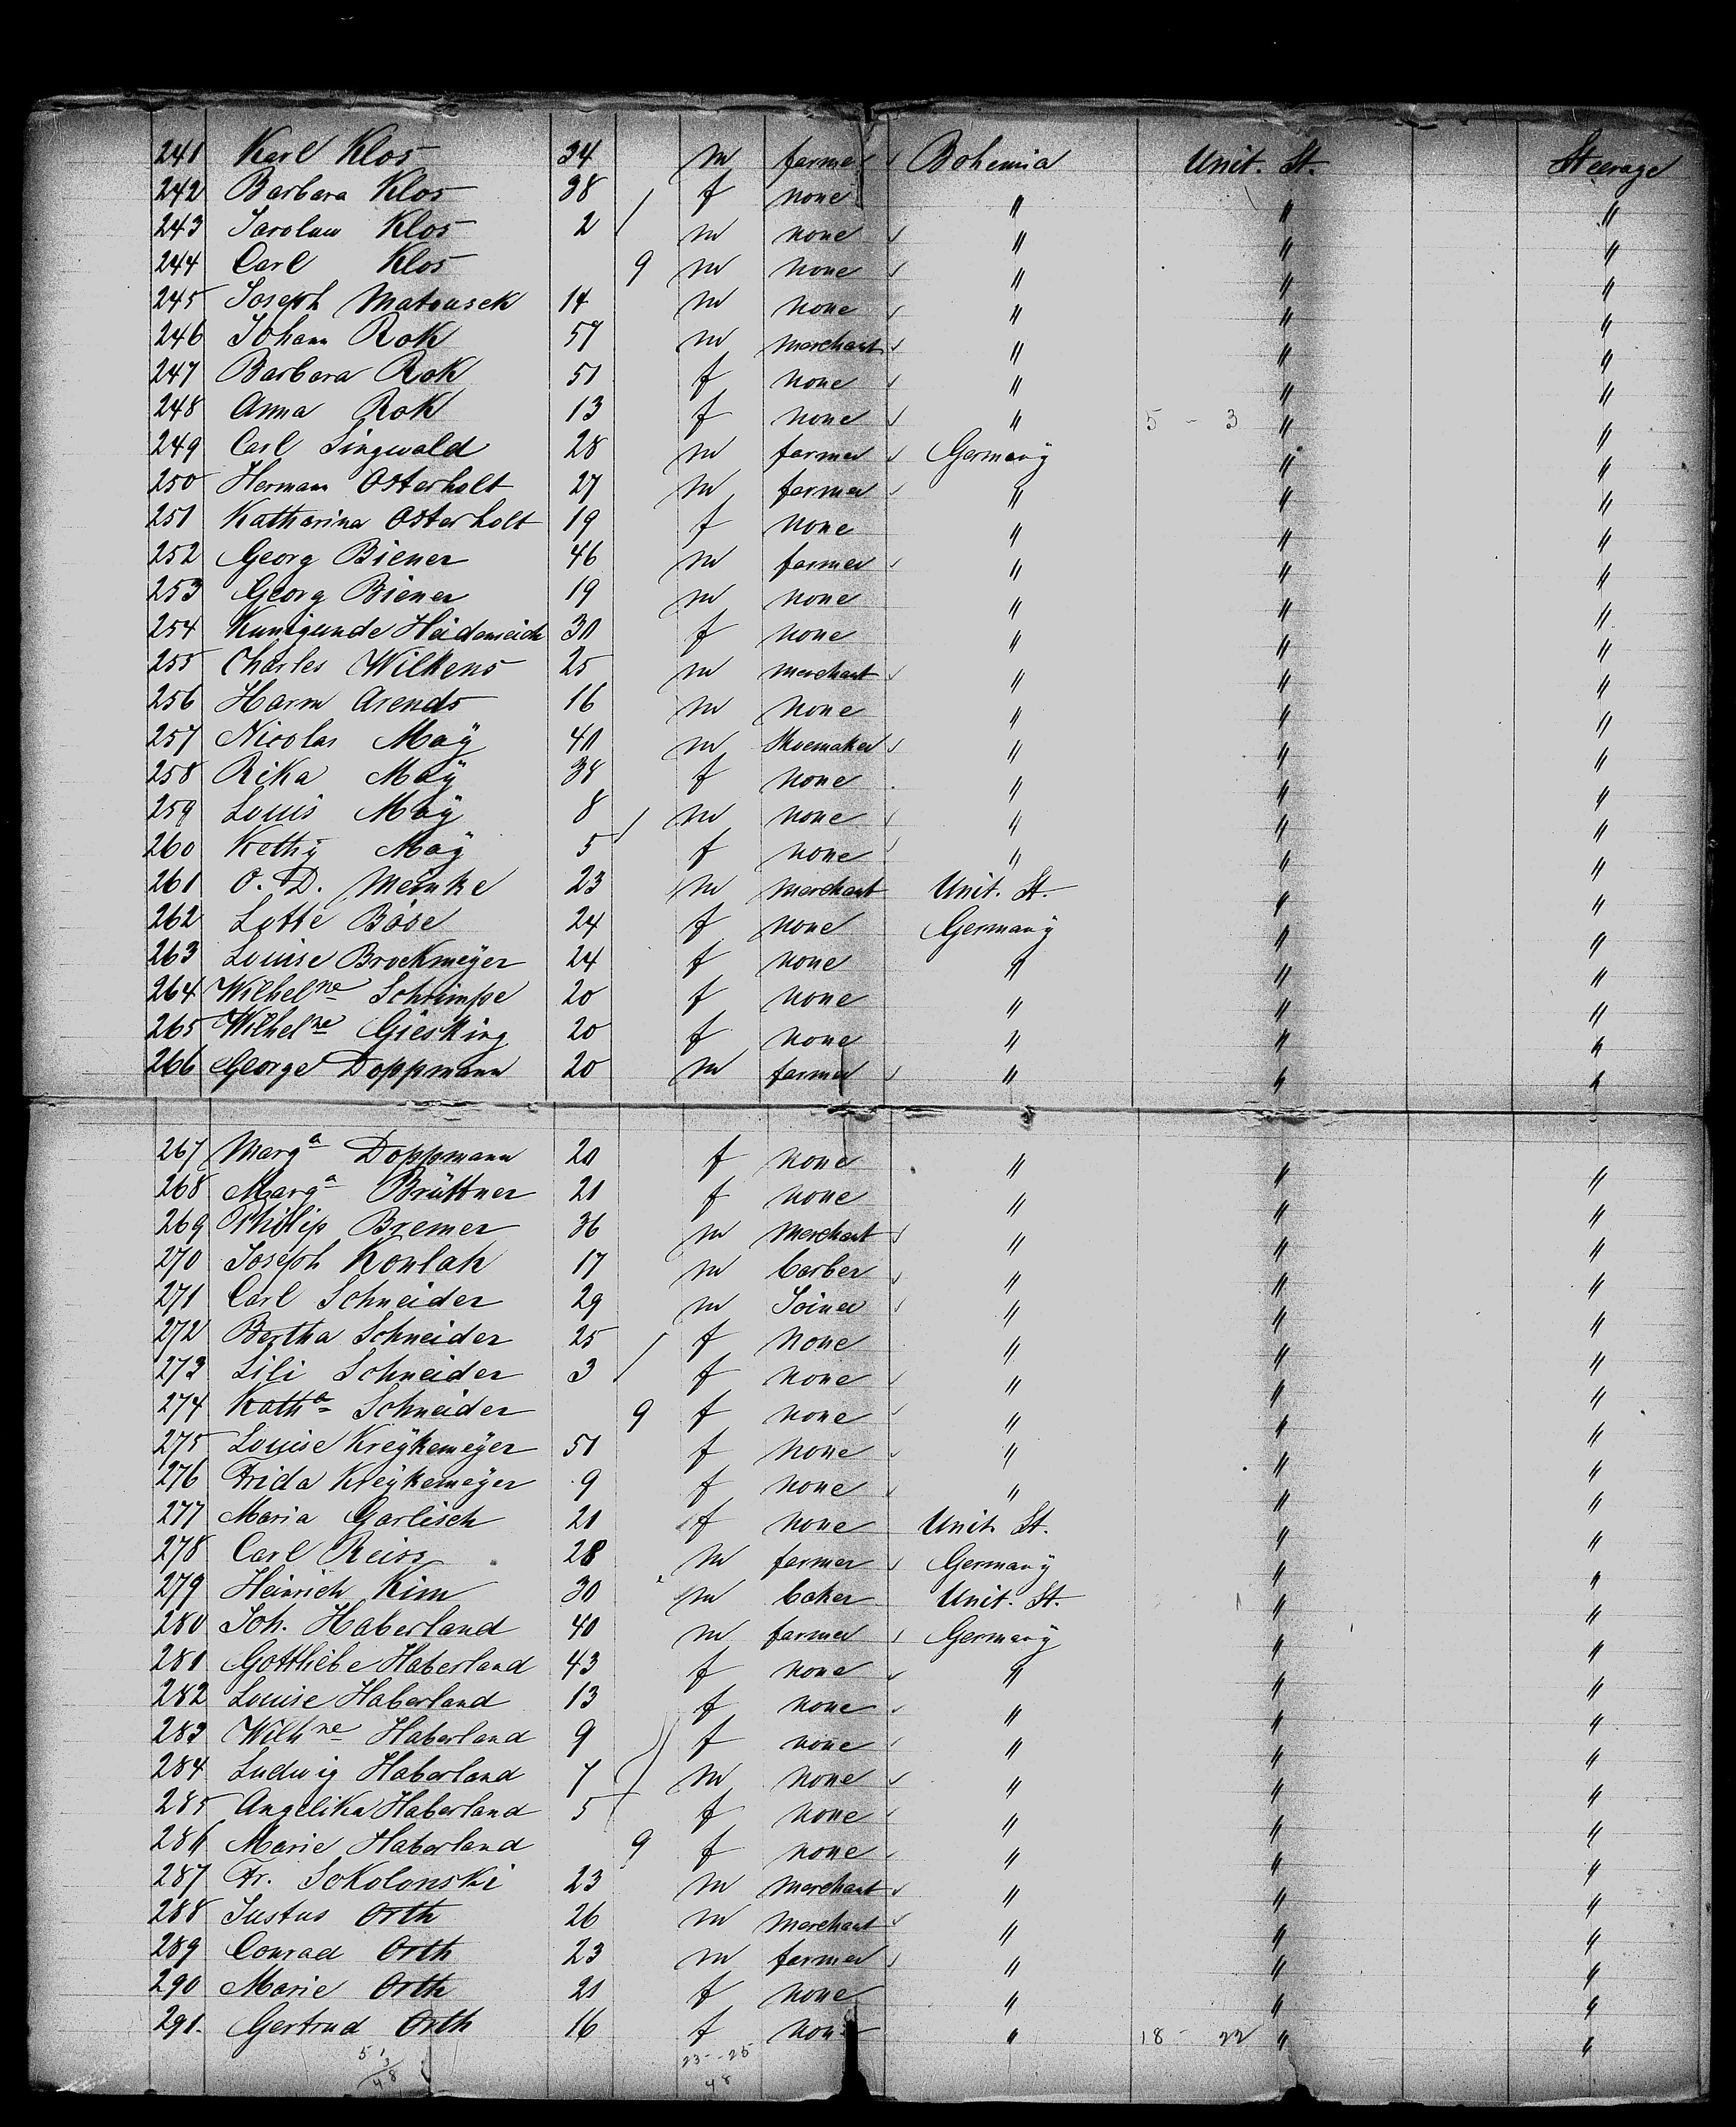 241 Karl Klos 34 m farmer Bohemia Unit. St. Steerage
242 Barbara Klos 38 f none " " "
243 Jarolaw Klos 2 m none " " "
244 Carl Klos 9 m none " " "
245 Joseph Matousek 14 m none " " "
246 Johann Rok 57 m merchant " " "
247 Barbara Rok 51 f none " " "
248 Anna Rok 13 f none " 5 - 3 " "
249 Carl Singwald 28 m farmer Germany " "
250 Hermann Osterholt 27 m farmer " " "
251 Katharina Osterholt 19 f none " " "
252 Georg Biener 46 m farmer " " "
253 Georg Biener 19 m none " " "
254 Kunigunde Heidenreich 30 f none " " "
255 Charles Wilkens 25 m merchant " " "
256 Harm Arends 16 m none " " "
257 Nicolas Maÿ 40 m Shoemaker " " "
258 Rika Maÿ 38 f none " " "
259 Louis Maÿ 8 m none " " "
260 Kethÿ Maÿ 5 f none " " "
261 O. D. Meinke 23 m merchant Unit. St. " "
262 Lotte Böse 24 f none Germany " "
263 Louise Brockmeÿer 24 f none " " "
264 Wilhelne Schrimpe 20 f none " " "
265 Wilhelne Giesking 20 f none " " "
266 George Doppmann 20 m farmer " " "
267 Marga Doppmann 20 f none " " "
268 Marga Brüttner 21 f none " " "
269 Philip Bremer 36 m merchant " " "
270 Joseph Konlak 17 m barber " " "
271 Carl Schneider 29 m Joiner " " "
272 Bertha Schneider 25 f none " " "
273 Lili Schneider 3 f none " " "
274 Katha Schneider 9 f none " " "
275 Louise Kreÿkemeÿer 51 f none " " "
276 Frida Kreÿkemeÿer 9 f none " " "
277 Maria Garlisch 21 f none Unit. St. " "
278 Carl Reiss 28 m farmer Germany " "
279 Heinrich Kim 30 m baker Unit. St. " "
280 Joh. Haberland 40 m farmer Germany " "
281 Gottliebe Haberland 43 f none " " "
282 Louise Haberland 13 f none " " "
283 Wilhne Haberland 9 f none " " "
284 Ludwig Haberland 7 m none " " "
285 Angelika Haberland 5 f none " " "
286 Marie Haberland 9 f none " " "
287 Fr. Sokolonski 23 m merchant " " "
288 Justus Orth 26 m merchant " " "
289 Conrad Orth 23 m farmer " " "
290 Marie Orth 21 f none " " "
291. Gertrud Orth 16 f none " 18 - 22 " "
51 23 - 25
3
48 48